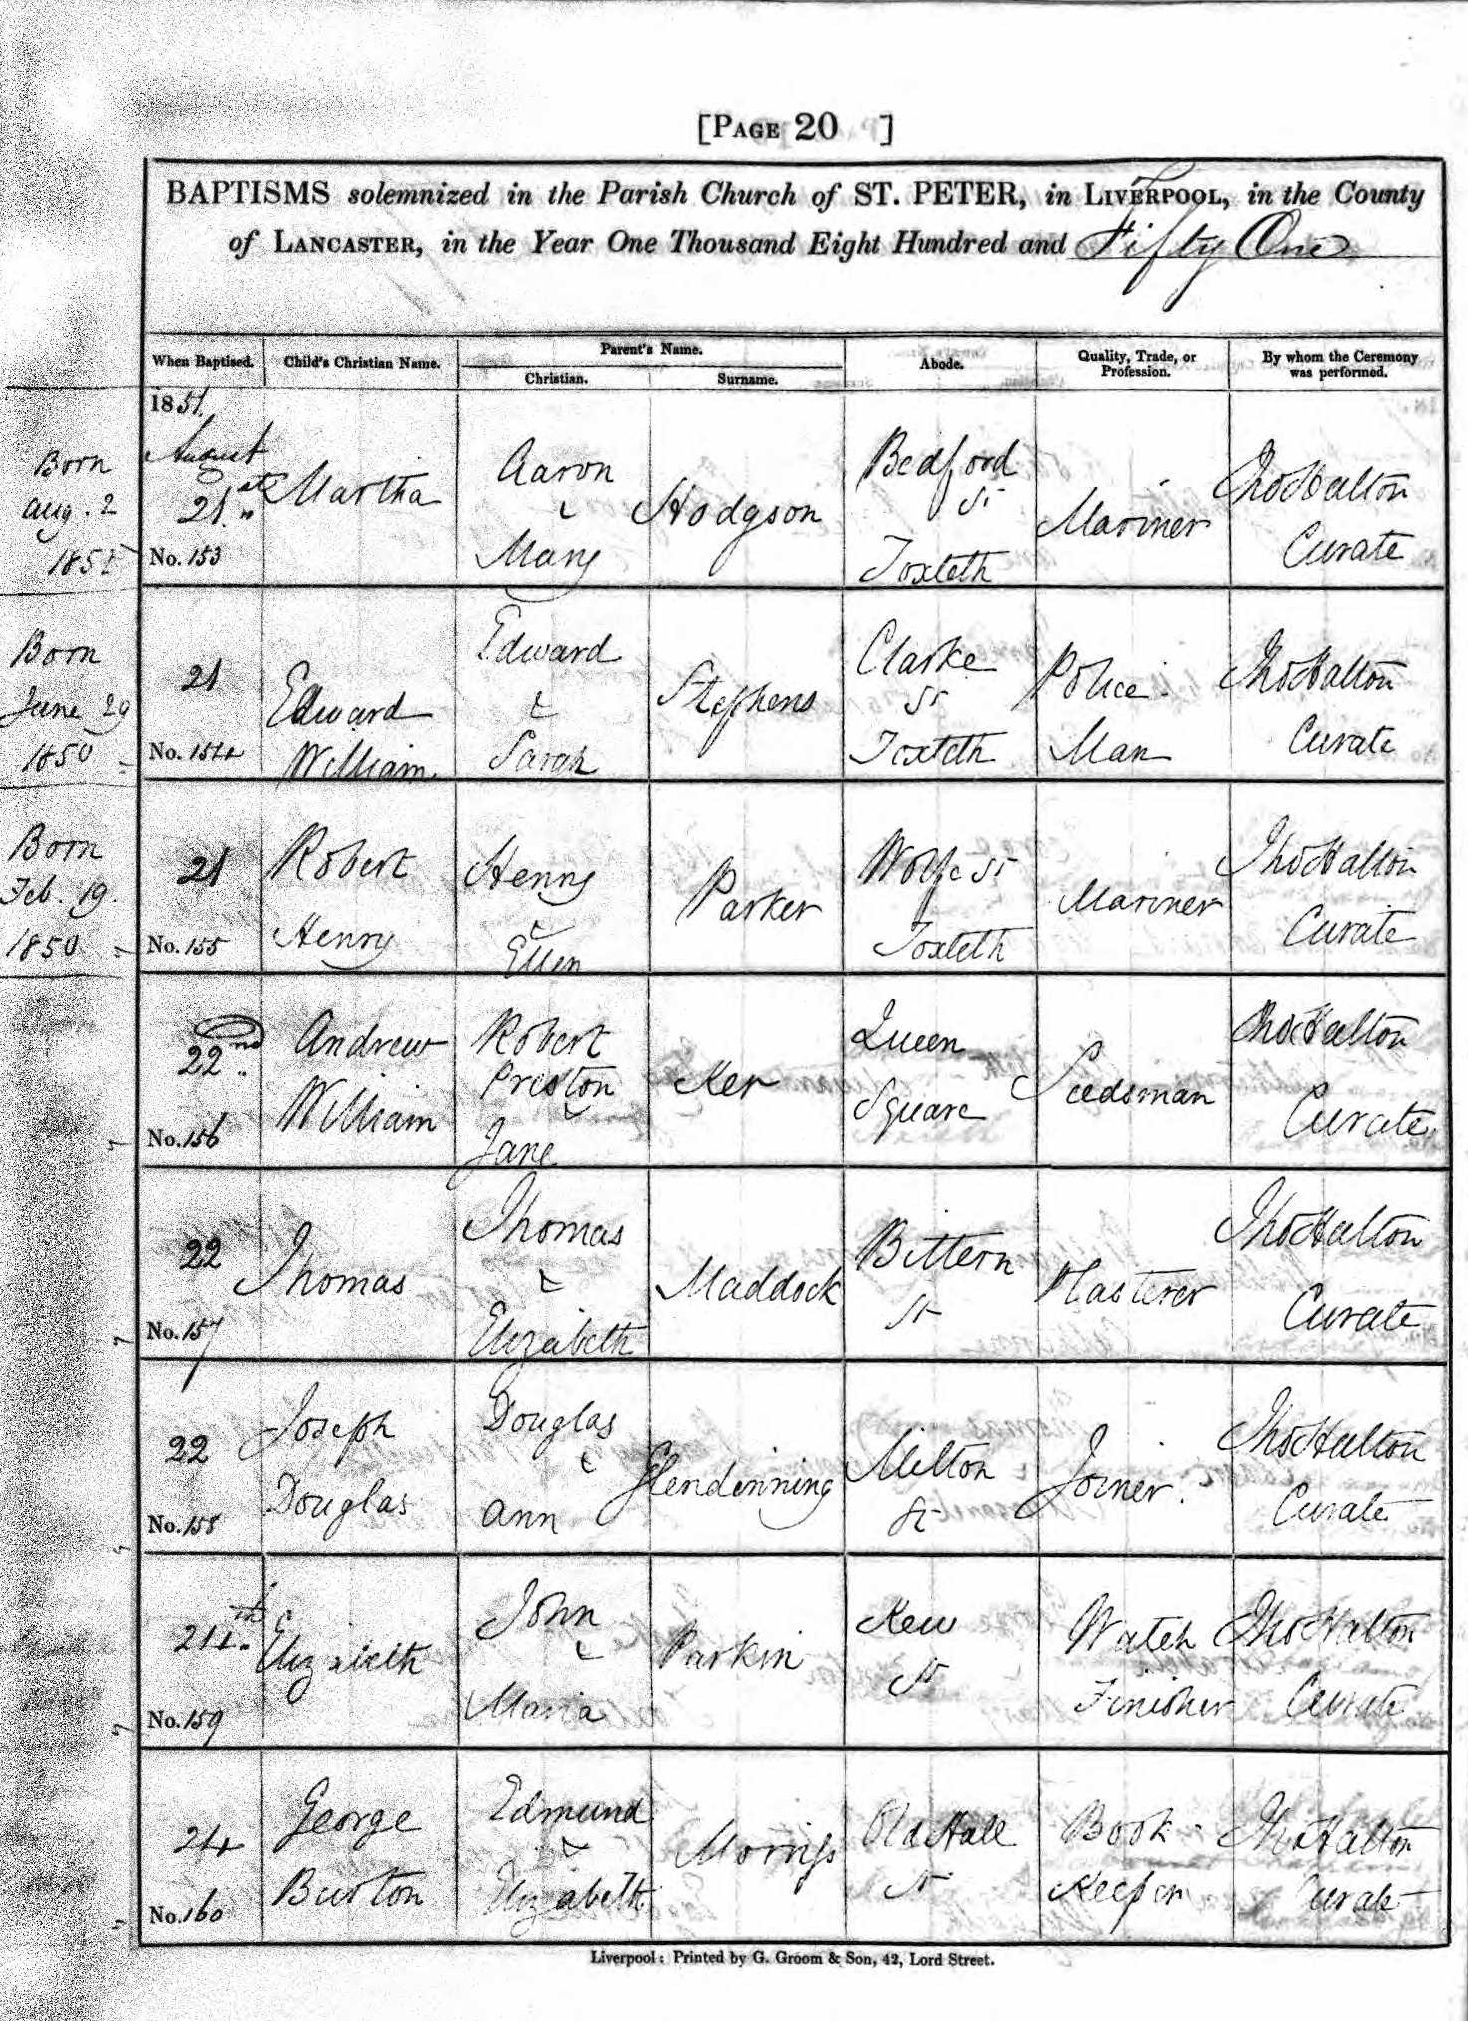 [PAGE 20 ]
BAPTISMS solemnized in the Parish Church of ST. PETER, in LIVERPOOL, in the County
of LANCASTER, in the Year One Thousand Eight Hundred and Fifty One
When Baptised.
Child's Christian Name.
Parent's Name.
Christian.
Surname.
Abode.
Quality, Trade, or
Profession.
By whom the Ceremony
was performed.
1851.
Born
Aug. 2
1851
August
21st
No. 153
Martha
Aaron
&
Mary
Hodgson
Bedford
St
Toxteth
Mariner
Tho Halton
Curate
Born
June 29
1850
21
No. 154
Edward
William
Edward
&
Sarah
Stephens
Clarke
St
Toxteth
Police
Man
Tho Halton
Curate
Born
Feb. 19.
1850
21
No. 155
Robert
Henry
Henry
&
Ellen
Parker
Wolfe St
Toxteth
Mariner
Tho Halton
Curate
22nd
No. 156
Andrew
William
Robert
Preston
&
Jane
Ker
Queen
Square
Seedsman
Tho Halton
Curate
22
No. 157
Thomas
Thomas
&
Elizabeth
Maddock
Bittern
St
Plasterer
Tho Halton
Curate
22
No. 158
Joseph
Douglas
Douglas
&
Ann
Glendinning
Milton
St
Joiner.
Tho Halton
Curate
24th
No. 159
Elizabeth
John
&
Maria
Parkin
Kew
St
Watch
Finisher
Tho Halton
Curate
24
No. 160
George
Burton
Edmund
&
Elizabeth
Morriss
Old Hall
St
Book-
Keeper
Tho Halton
Curate
Liverpool: Printed by G. Groom & Son, 42, Lord Street.